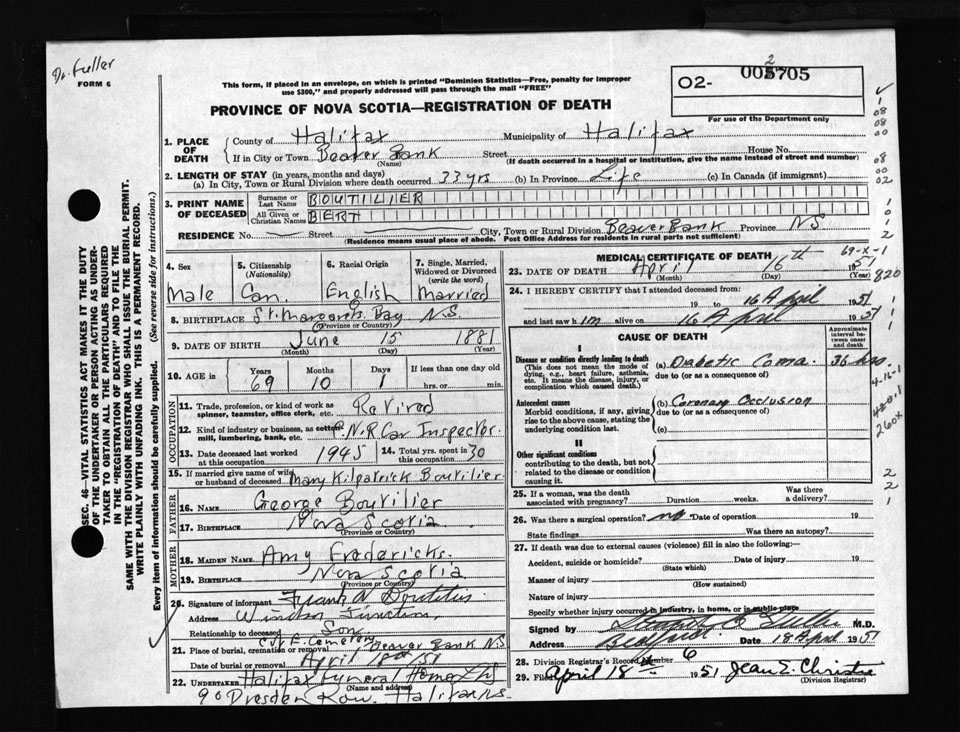 Dr. Fuller
FORM 6
This form, if placed in an envelope, on which is printed "Dominion Statistics—Free, penalty for improper
use $300," and properly addressed will pass through the mail "FREE"
PROVINCE OF NOVA SCOTIA—REGISTRATION OF DEATH
02- 005705
2
For use of the Department only
SEC. 46—VITAL STATISTICS ACT MAKES IT THE DUTY
OF THE UNDERTAKER OR PERSON ACTING AS UNDER-
TAKER TO OBTAIN ALL THE PARTICULARS REQUIRED
IN THE "REGISTRATION OF DEATH" AND TO FILE THE
SAME WITH THE DIVISION REGISTRAR WHO SHALL ISSUE THE BURIAL PERMIT.
WRITE PLAINLY WITH UNFADING INK. THIS IS A PERMANENT RECORD.
Every item of information should be carefully supplied. (See reverse side for instructions.)
1. PLACE OF DEATH
County of Halifax Municipality of Halifax
If in City or Town Beaver Bank Street House No.
(Name) (If death occurred in a hospital or institution, give the name instead of street and number)
2. LENGTH OF STAY (in years, months and days)
(a) In City, Town or Rural Division where death occurred 33 yrs (b) In Province Life (c) In Canada (if immigrant)
3. PRINT NAME OF DECEASED
Surname or Last Name BOUTILIER
All Given or Christian Names BERT
RESIDENCE No. Street City, Town or Rural Division Beaver Bank Province NS
(Residence means usual place of abode. Post Office Address for residents in rural parts not sufficient)
4. Sex Male
5. Citizenship (Nationality) Can.
6. Racial Origin English
7. Single, Married, Widowed or Divorced (write the word) Married
8. BIRTHPLACE St. Margarets Bay N.S.
(Province or Country)
9. DATE OF BIRTH June 15 1881
(Month) (Day) (Year)
10. AGE in Years 69 Months 10 Days 1 If less than one day old hrs. or min.
OCCUPATION
11. Trade, profession, or kind of work as spinner, teamster, office clerk, etc. Retired
12. Kind of industry or business, as cotton mill, lumbering, bank, etc. C.N.R Car Inspector.
13. Date deceased last worked at this occupation 1945
14. Total yrs. spent in this occupation 30
15. If married give name of wife or husband of deceased Mary Kilpatrick Boutilier
FATHER
16. NAME George Boutilier
17. BIRTHPLACE Nova Scotia
(Province or Country)
MOTHER
18. MAIDEN NAME Amy Fredericks.
19. BIRTHPLACE Nova Scotia
(Province or Country)
20. Signature of informant Frank N Boutilier
Address Windsor Junction
Relationship to deceased Son
21. Place of burial, cremation or removal C of E. Cemetery Beaver Bank N.S.
Date of burial or removal April 18th/51
22. Undertaker Halifax Funeral Home Ltd
(Name and address)
90 Dresden Row. Halifax N.S.
MEDICAL CERTIFICATE OF DEATH
23. DATE OF DEATH April 16th 1951
(Month) (Day) (Year)
24. I HEREBY CERTIFY that I attended deceased from:
19 to 16 April 1951
and last saw him alive on 16 April 1951
CAUSE OF DEATH
Approximate interval between onset and death
I
Disease or condition directly leading to death
(This does not mean the mode of dying, e.g., heart failure, asthenia, etc. It means the disease, injury, or complication which caused death.)
(a) Diabetic Coma. 36 hrs.
due to (or as a consequence of)
Antecedent causes
Morbid conditions, if any, giving rise to the above cause, stating the underlying condition last.
(b) Coronary Occlusion
due to (or as a consequence of)
(c)
II
Other significant conditions
contributing to the death, but not related to the disease or condition causing it.
25. If a woman, was the death associated with pregnancy? Duration weeks. Was there a delivery?
26. Was there a surgical operation? no Date of operation 19
State findings Was there an autopsy?
27. If death was due to external causes (violence) fill in also the following:—
Accident, suicide or homicide? Date of injury 19
(State which)
Manner of injury
(How sustained)
Nature of injury
Specify whether injury occurred in industry, in home, or in public place
Signed by Fuller M.D.
Address Bedford. Date 18 April 1951
28. Division Registrar's Record Number 6
29. Filed April 18th 1951 Jean E. Christie
(Division Registrar)
1
08
08
00
08
00
02
1
0
1
2
69-x-1
820
1
1
1
4-16-1
420.1
260x
2
2
1